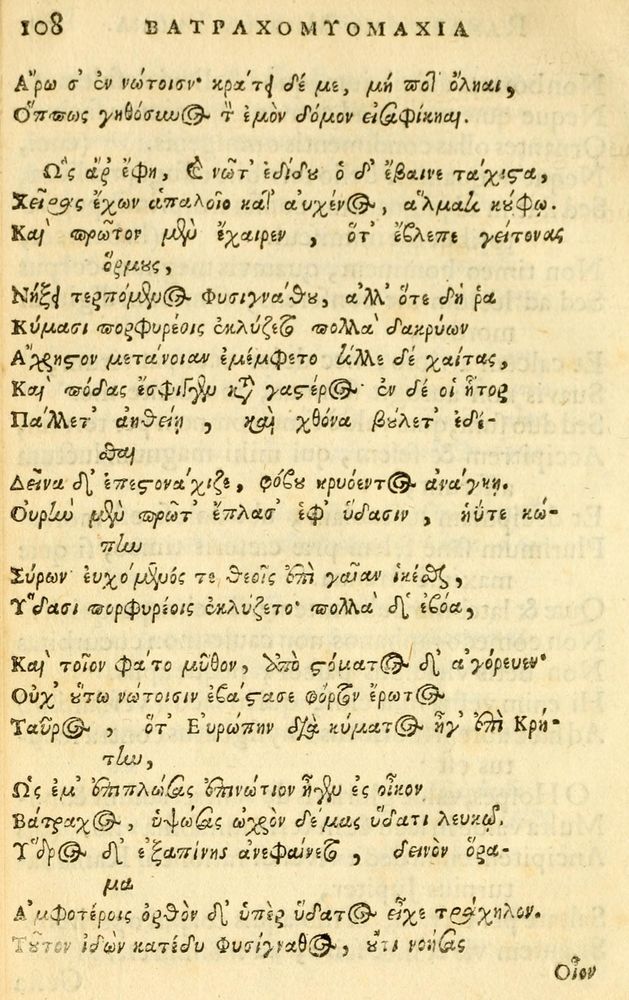 108 ΒΑΤΡΑΧΟΜΥΟΜΑΧΙΑ
Αἴρω σ' ἐν νώτοισιν· κράτει δέ με, μή ποτ' ὄληαι,
Ὅππως γηθόσυνος τ' ἐμὸν δόμον εἰσαφίκηαι.
Ὣς ἄρ' ἔφη, καὶ νῶτ' ἐδίδου ὁ δ' ἔβαινε τάχιστα,
Χεῖρας ἔχων ἁπαλοῖο κατ' αὐχένος, ἅλματι κούφῳ.
Καὶ πρῶτον μὲν ἔχαιρεν, ὅτ' ἔβλεπε γείτονας
ὅρμους,
Νήξει τερπόμενος Φυσιγνάθου, ἀλλ' ὅτε δή ῥα
Κύμασι πορφυρέοις ἐκλύζετο πολλὰ δακρύων
Ἄχρηστον μετάνοιαν ἐμέμφετο τίλλε δέ χαίτας,
Καὶ πόδας ἔσφιγγεν κατὰ γαστέρος ἐν δέ οἱ ἦτορ
Πάλλετ' ἀηθείῃ, καὶ χθόνα βούλεθ' ἱδέ-
θαι
Δεῖνα δ' ἐπεστονάχιζε, φόβου κρυόεντος ἀνάγκῃ.
Οὐρὴν μὲν πρῶτ' ἔπλασ' ἐφ' ὕδασιν, ἠΰτε κώ-
πην
Σύρων· εὐχόμενός τε θεοῖς ἐπὶ γαῖαν ἱκέσθαι,
Ὕδασι πορφυρέοις ἐκλύζετο· πολλὰ δ' ἐβόα,
Καὶ τοῖον φάτο μῦθον, ἀπὸ στόματος δ' ἀγόρευεν·
Οὐχ' οὕτω νώτοισιν ἐβάστασε φόρτον ἔρωτος
Ταῦρος, ὅτ' Εὐρώπην διὰ κύματος ἦγ' ἐπὶ Κρή-
την,
Ὡς ἐμ' ἐπιπλώσας ἐπινώτιον ἦγεν ἐς οἶκον
Βάτραχος, ὑψώσας ὠχρὸν δέμας ὕδατι λευκῷ.
Ὕδρος δ' ἐξαπίνης ἀνεφαίνετο, δεινὸν ὅρα-
μα
Ἀμφοτέροις ὀρθὸν δ' ὑπὲρ ὕδατος εἶχε τράχηλον.
Τοῦτον ἰδὼν κατέδυ Φυσίγναθος, οὔτι νοήσας
Οἷον